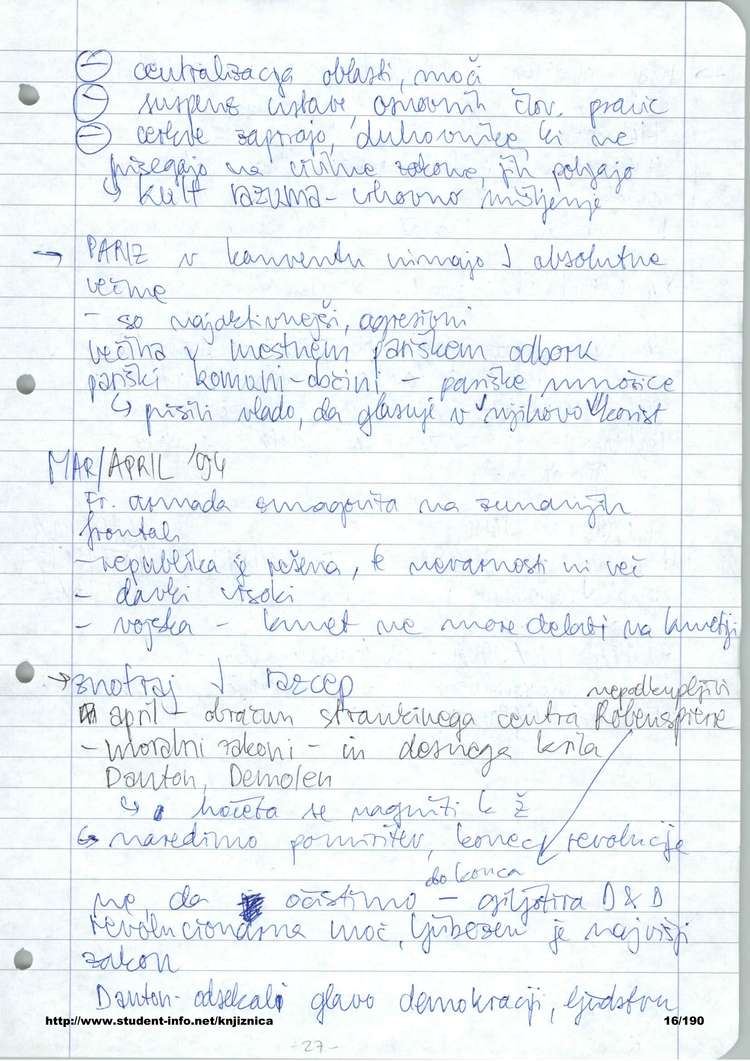 ⊖ centralizacija oblasti, moči
⊖ suspenz ustave, osnovnih člov. pravic
⊖ cerkve zaprejo, duhovnike, ki ne
prisegajo na civilne zakone, jih pobijajo
↳ kult razuma - vrhovno mišljenje
→ PARIZ v konventu nimajo J absolutne
večine
- so najaktivnejši, agresivni
večina v mestnem pariškem odboru
pariški komuni - občini - pariške množice
↳ prisili vlado, da glasuje v njihovo korist
MAR/APRIL '94
Fr. armada zmagovita na zunanjih
frontah
- republika je rešena, te nevarnosti ni več
- davki visoki
- vojska - kmet ne more delati na kmetiji
→ znotraj J razcep
nepodkupljivi
april - obračun strankinega centra Robenspierre
- moralni zakoni - in desnega krila
Danton, Demolen
↳ hočeta se nagniti k ž
↳ naredimo pomiritev, konec revolucije
do konca
ne, da očistimo - giljotira D & D
revolucionarna moč, ljubezen je najvišji
zakon
Danton - odsekali glavo demokraciji, ljudstvu
http://www.student-info.net/knjiznica 16/190
- 27 -